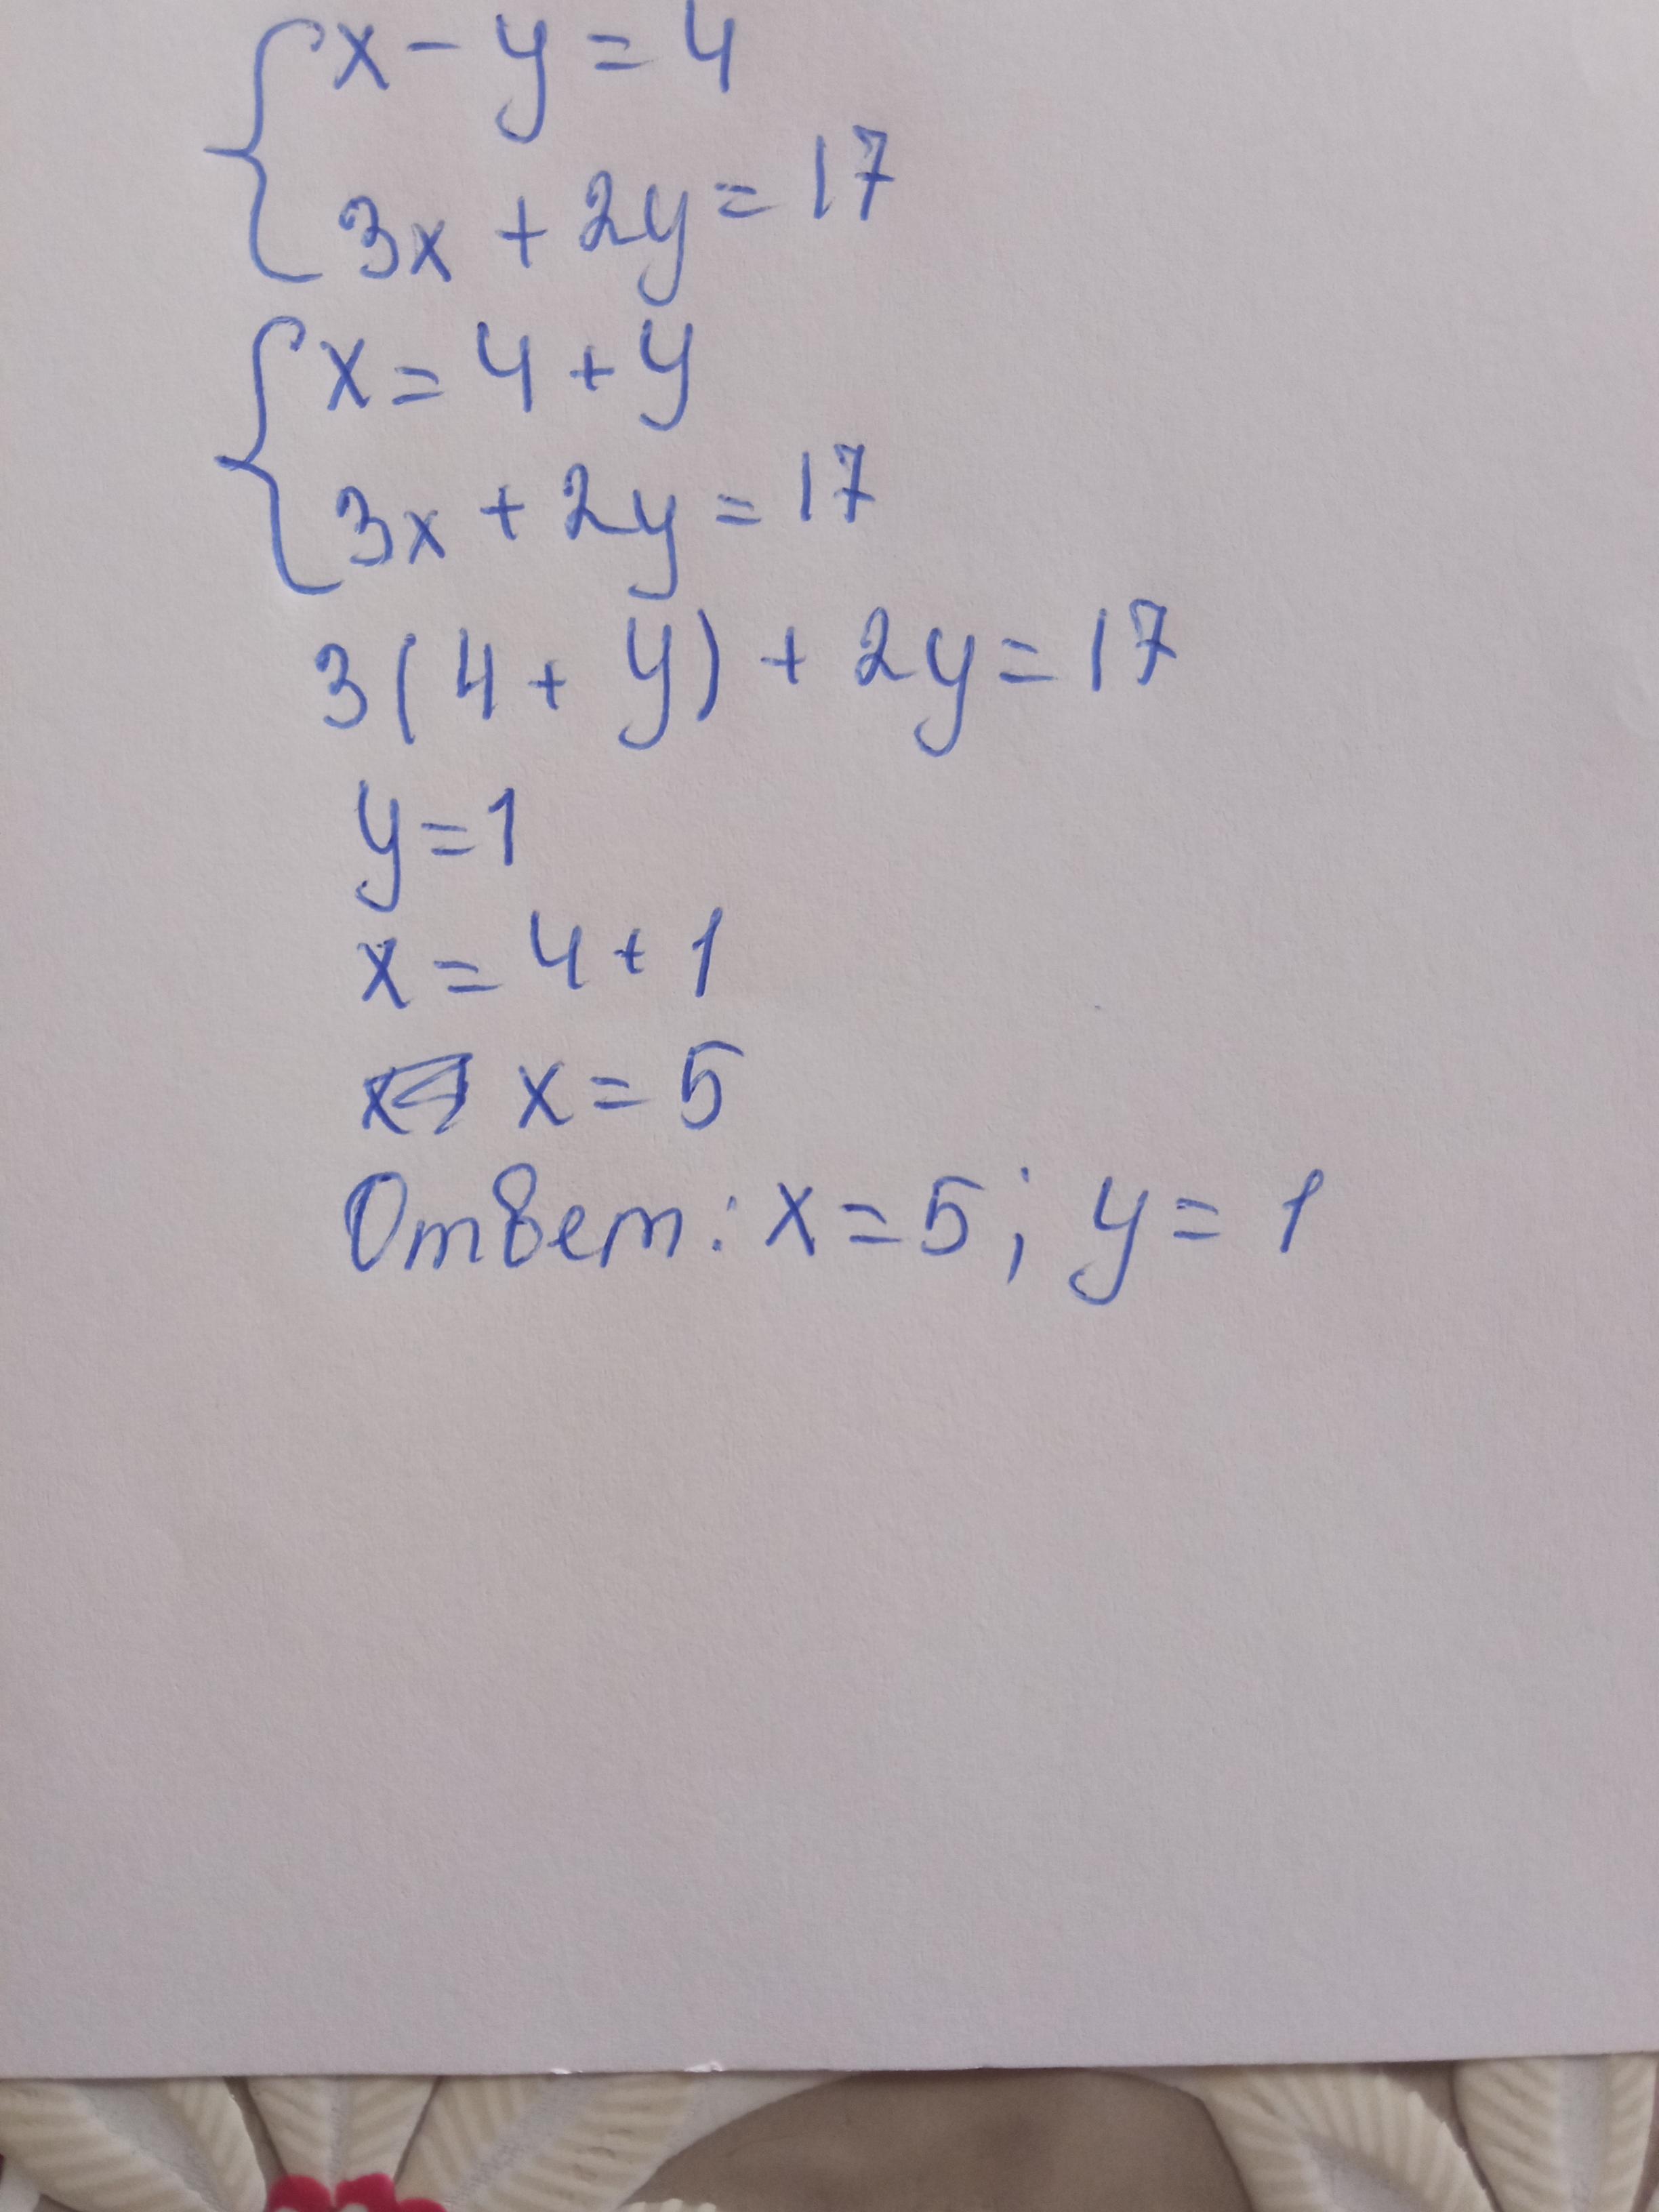 x - y = 4
3x + 2y = 17
x = 4 + y
3x + 2y = 17
3(4 + y) + 2y = 17
y = 1
x = 4 + 1
x = 5
Ответ: x = 5; y = 1